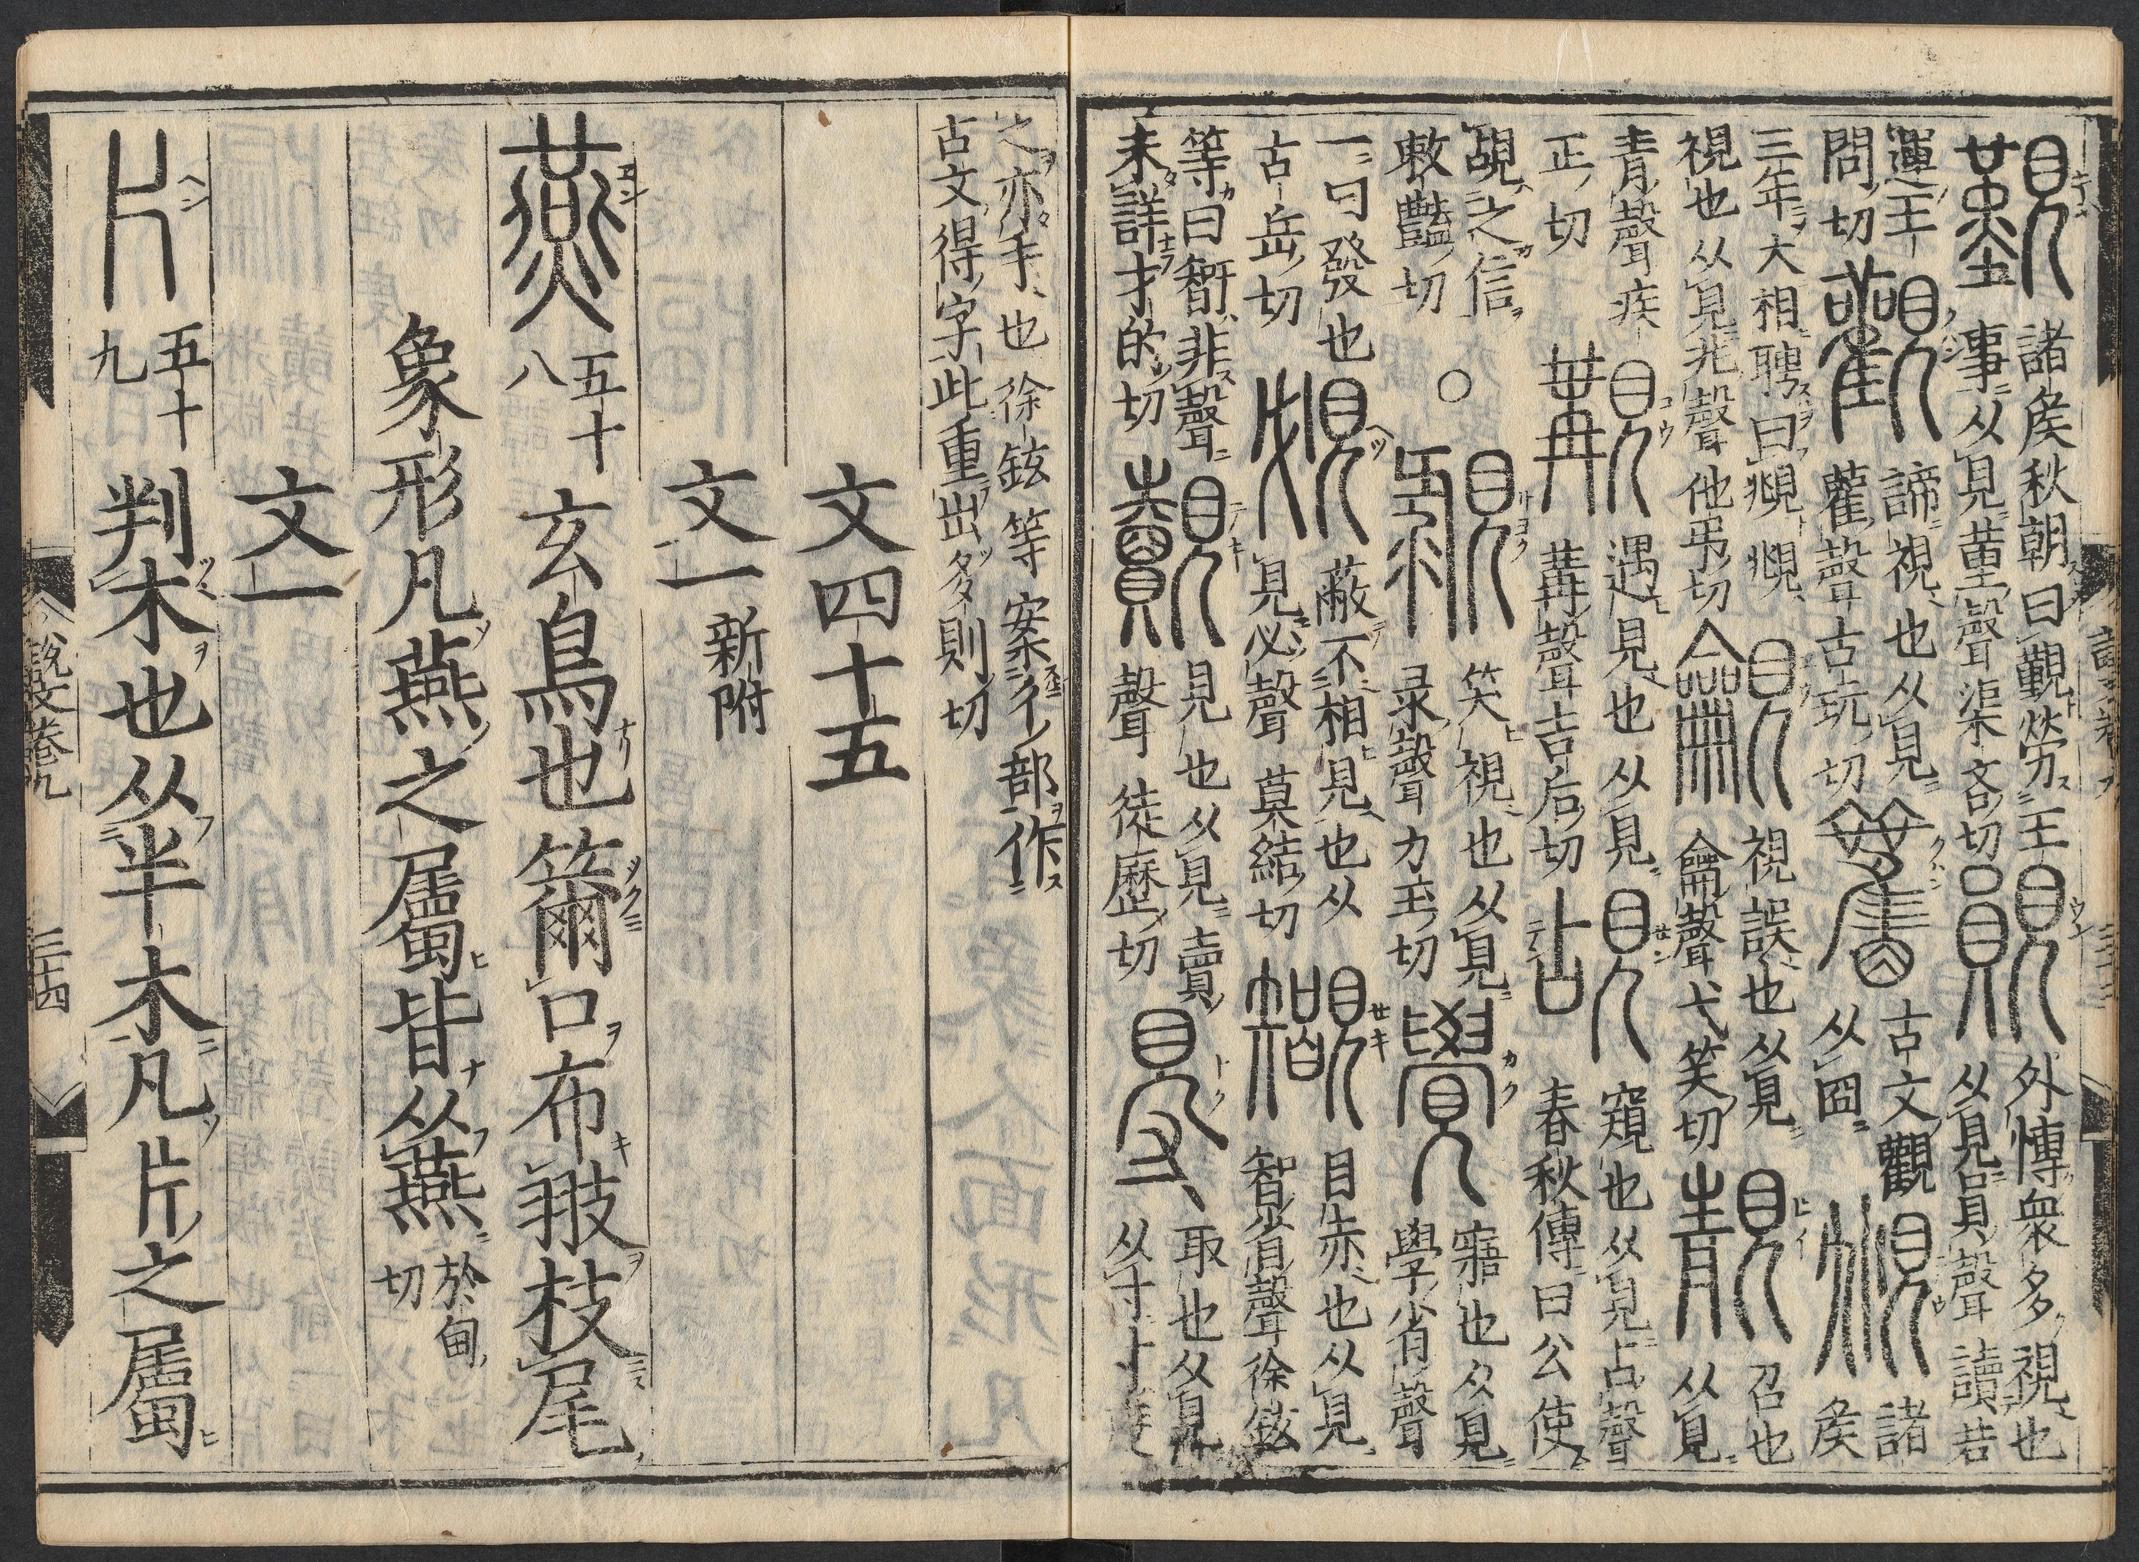 覲
諸矦秋朝曰覲勞王
事从見堇聲渠吝切
外博衆多視也
从見員聲讀若
運王
問切
觀
諦視也从見
雚聲古玩切
古文觀
从囧
覜
諸
矦
三年大相聘曰覜覜
視也从見兆聲他弔切
視誤也从見
龠聲弋笑切
靚
召也
从見
青聲疾
正切
覯
遇見也从見
冓聲古后切
覘
窺也从見占聲
春秋傳曰公使
覘之信○
敕豔切
笑視也从見
录聲力玉切
覺
寤也从見
學省聲
一曰發也
古岳切
覕
蔽不相見也从
見必聲莫結切
目赤也从見
智省聲徐鉉
等曰智非聲
未詳才的切
覿
見也从見賣
聲徒歷切
㝵
取也从見
从寸寸度
之亦手也徐鉉等案彳部作
古文得字此重出多則切
文四十五
文一 新附
燕 五十八 玄鳥也籋口布翄枝尾
象形凡燕之屬皆从燕 於甸切
文一
片 五十九 判木也从半木凡片之屬
說文卷九 三十四